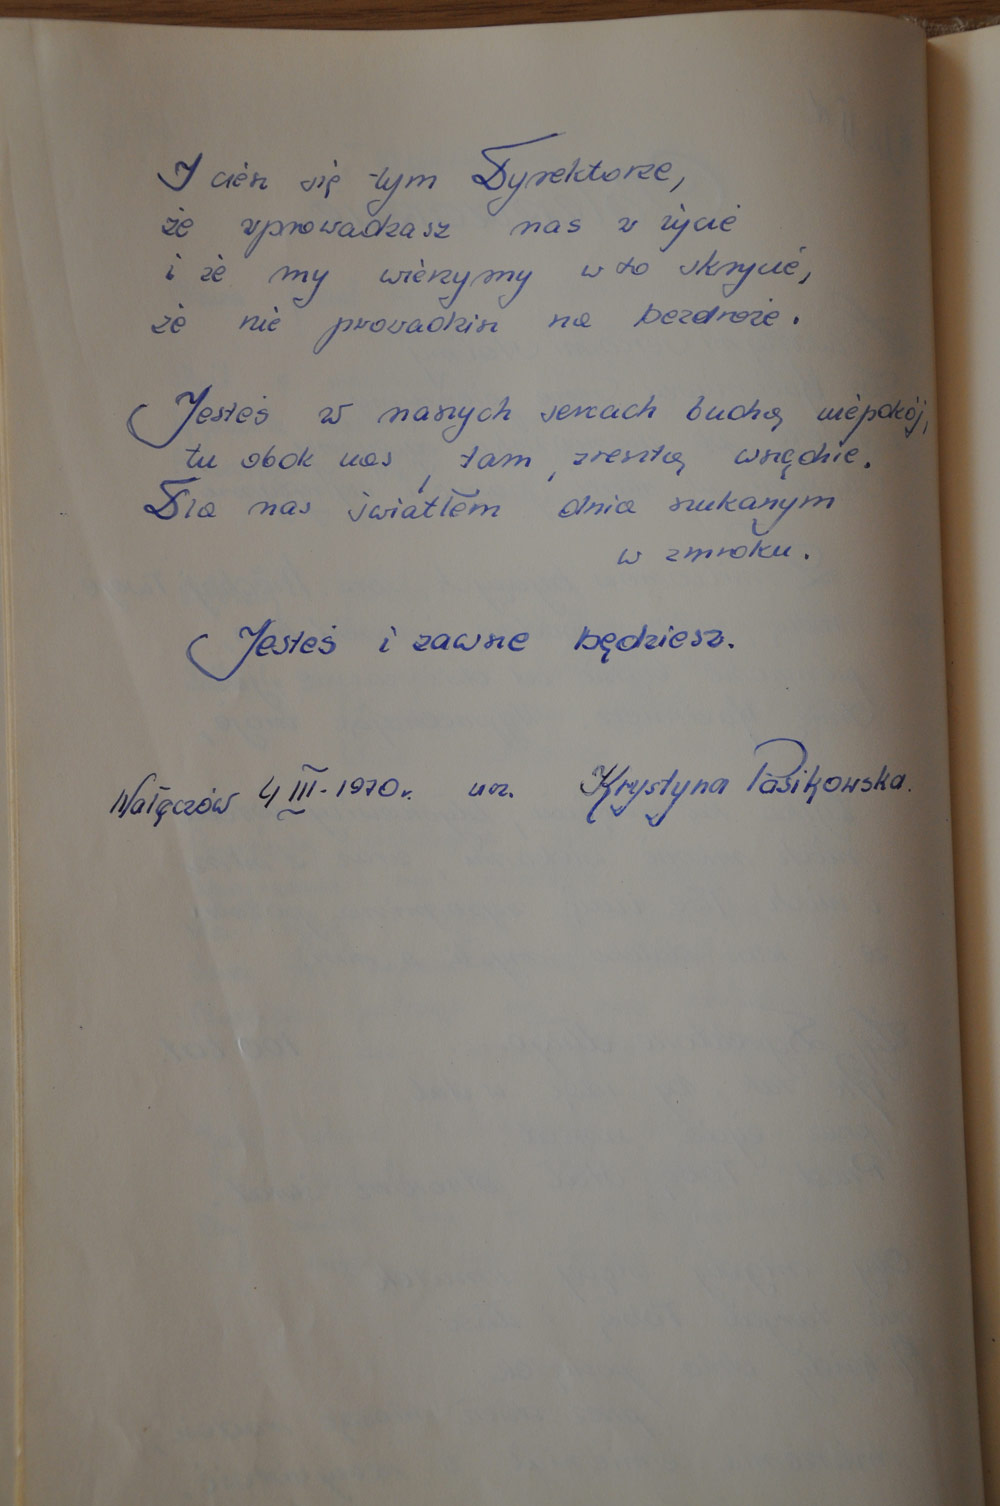 I ciesz się tym Dyrektorze,
że wprowadzasz nas w życie
i że my wierzymy w to skrycie,
że nie prowadzisz na bezdroże.
Jesteś w naszych sercach buchą niepokój,
tu obok nas, tam, zresztą wszędzie.
Dla nas światłem dnia szukanym
w zmroku.
Jesteś i zawsze będziesz.
Nałęczów 4 III - 1970 r. ucz. Krystyna Pasikowska.